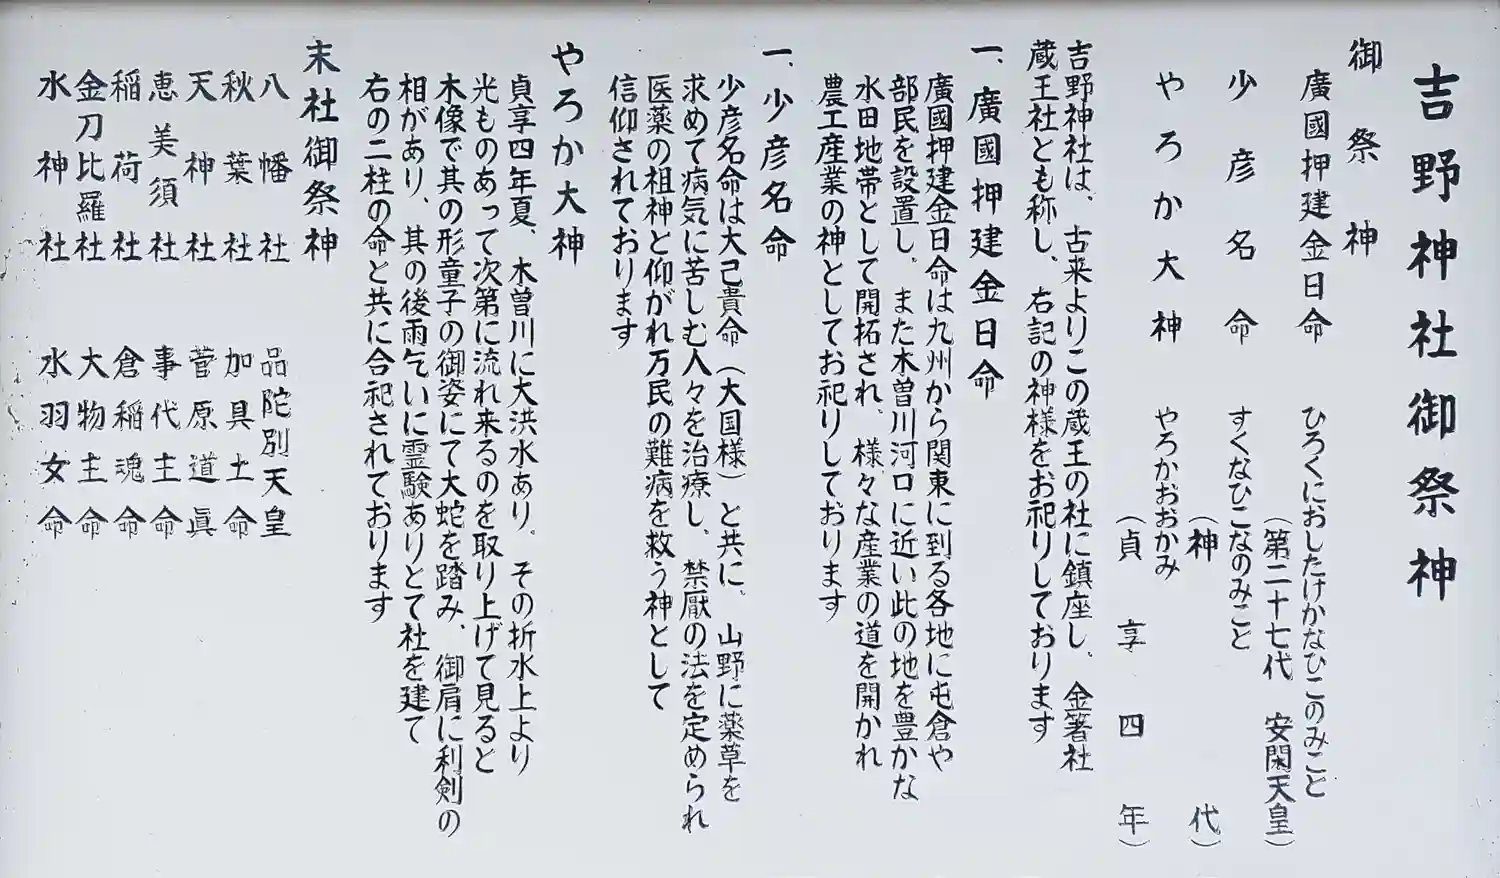 吉野神社御祭神
御祭神
廣國押建金日命 ひろくにおしたけかなひこのみこと
（第二十七代 安閑天皇）
少彦名命 すくなひこなのみこと
（神代）
やろか大神 やろかおおかみ
（貞享四年）
吉野神社は、古来よりこの蔵王の社に鎮座し、金箸社
蔵王社とも称し、右記の神様をお祀りしております
一、廣國押建金日命
廣國押建金日命は九州から関東に到る各地に屯倉や
部民を設置し、また木曽川河口に近い此の地を豊かな
水田地帯として開拓され、様々な産業の道を開かれ
農工産業の神としてお祀りしております
一、少彦名命
少彦名命は大己貴命（大国様）と共に、山野に薬草を
求めて病気に苦しむ人々を治療し、禁厭の法を定められ
医薬の祖神と仰がれ万民の難病を救う神として
信仰されております
やろか大神
貞享四年夏、木曽川に大洪水あり。その折水上より
光ものあって次第に流れ来るのを取り上げて見ると
木像で其の形童子の御姿にて大蛇を踏み、御肩に利剣の
相があり、其の後雨乞いに霊験ありとて社を建て
右の二柱の命と共に合祀されております
末社御祭神
八幡社 品陀別天皇
秋葉社 加具土命
天神社 菅原道眞
恵美須社 事代主命
稲荷社 倉稲魂命
金刀比羅社 大物主命
水神社 水羽女命